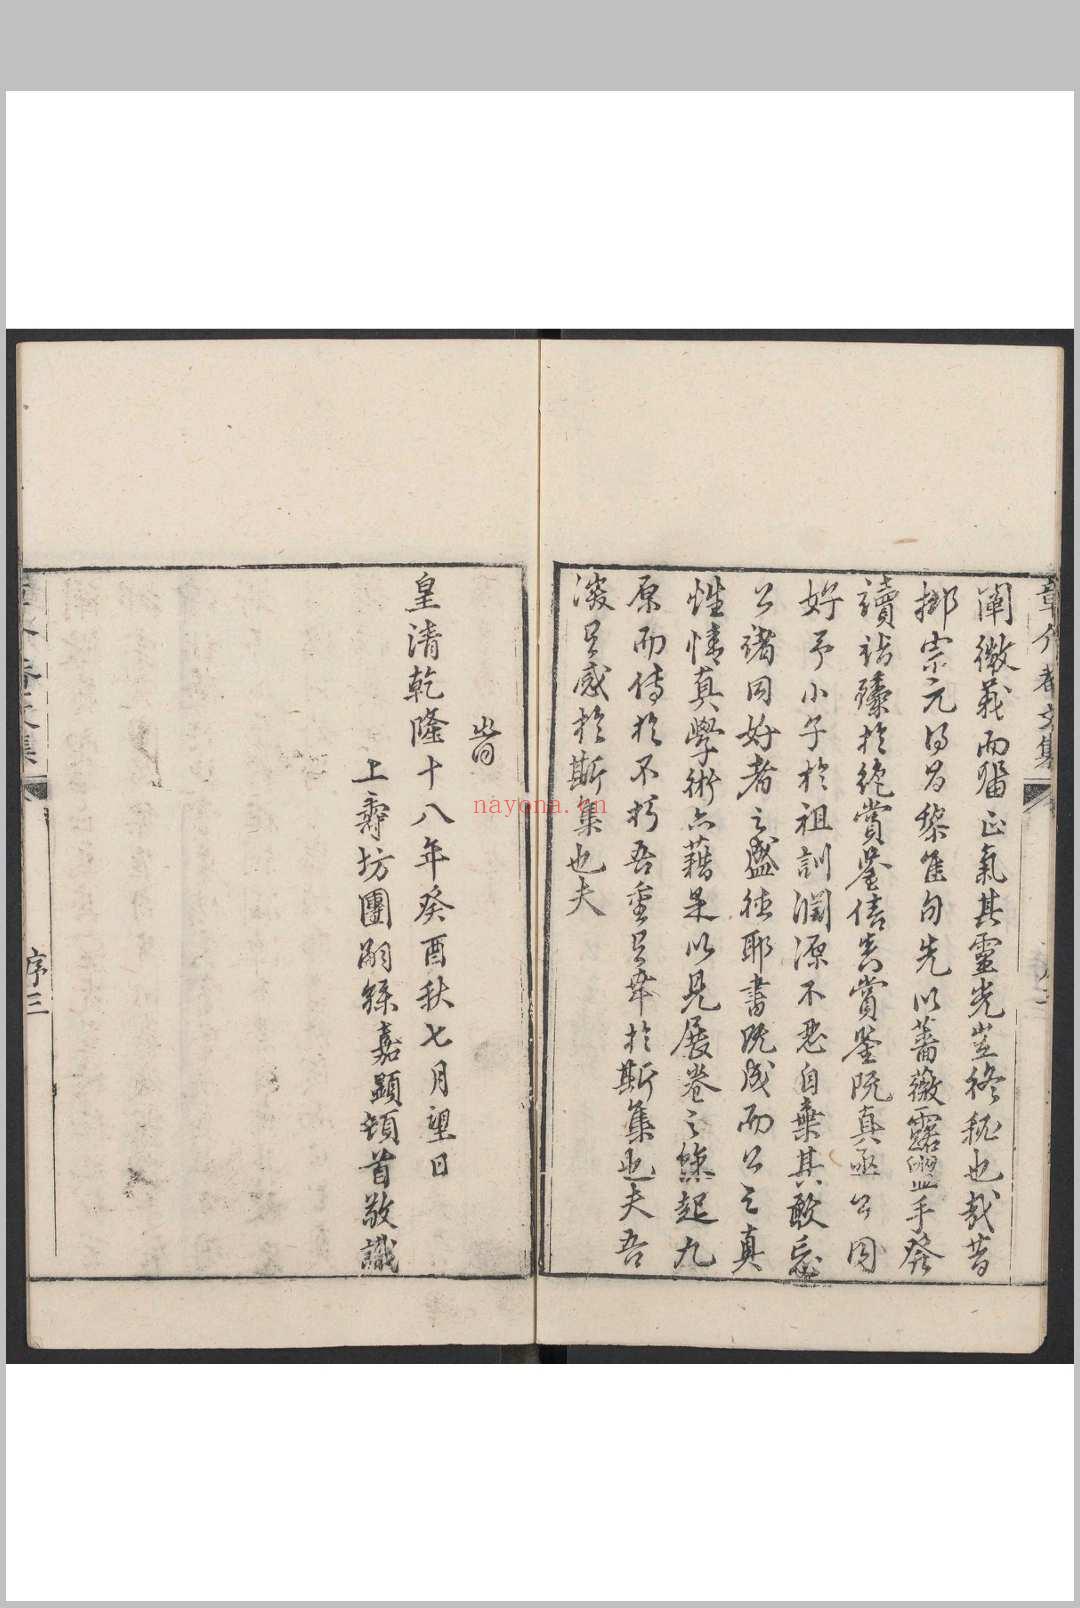 章介眷文集
闡微義而留正氣其靈光豈終秘也哉昔
柳宗元得昌黎隹句先以薔薇露盥手發
讀詒殊於絶賞鑒信矣賞鑒既真亟公同
好予小子於祖訓淵源不忍自棄其敢忘
公諸同好者之盛徳耶書既成而公之真
性情真學術亦藉是以見展卷之餘起九
原而傳於不朽吾重有幸於斯集也夫吾
滋有感於斯集也夫
旹
皇清乾隆十八年癸酉秋七月望日
上壽坊團嗣孫嘉顯頓首敬識
序三
nayona.cn